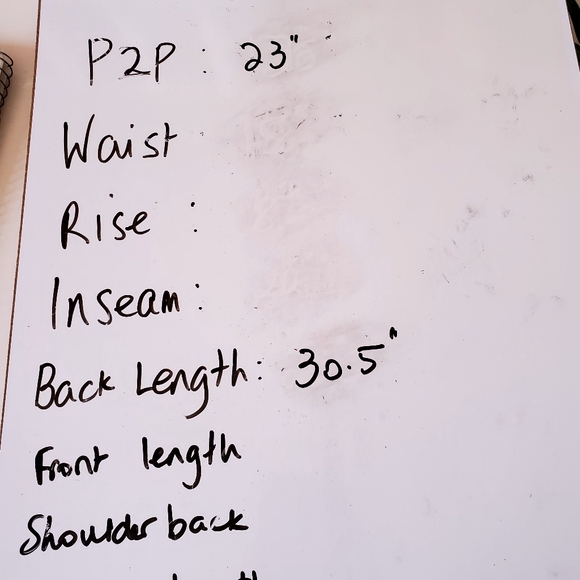 P2P : 23"
Waist
Rise :
Inseam:
Back Length: 30.5"
Front length
Shoulder back